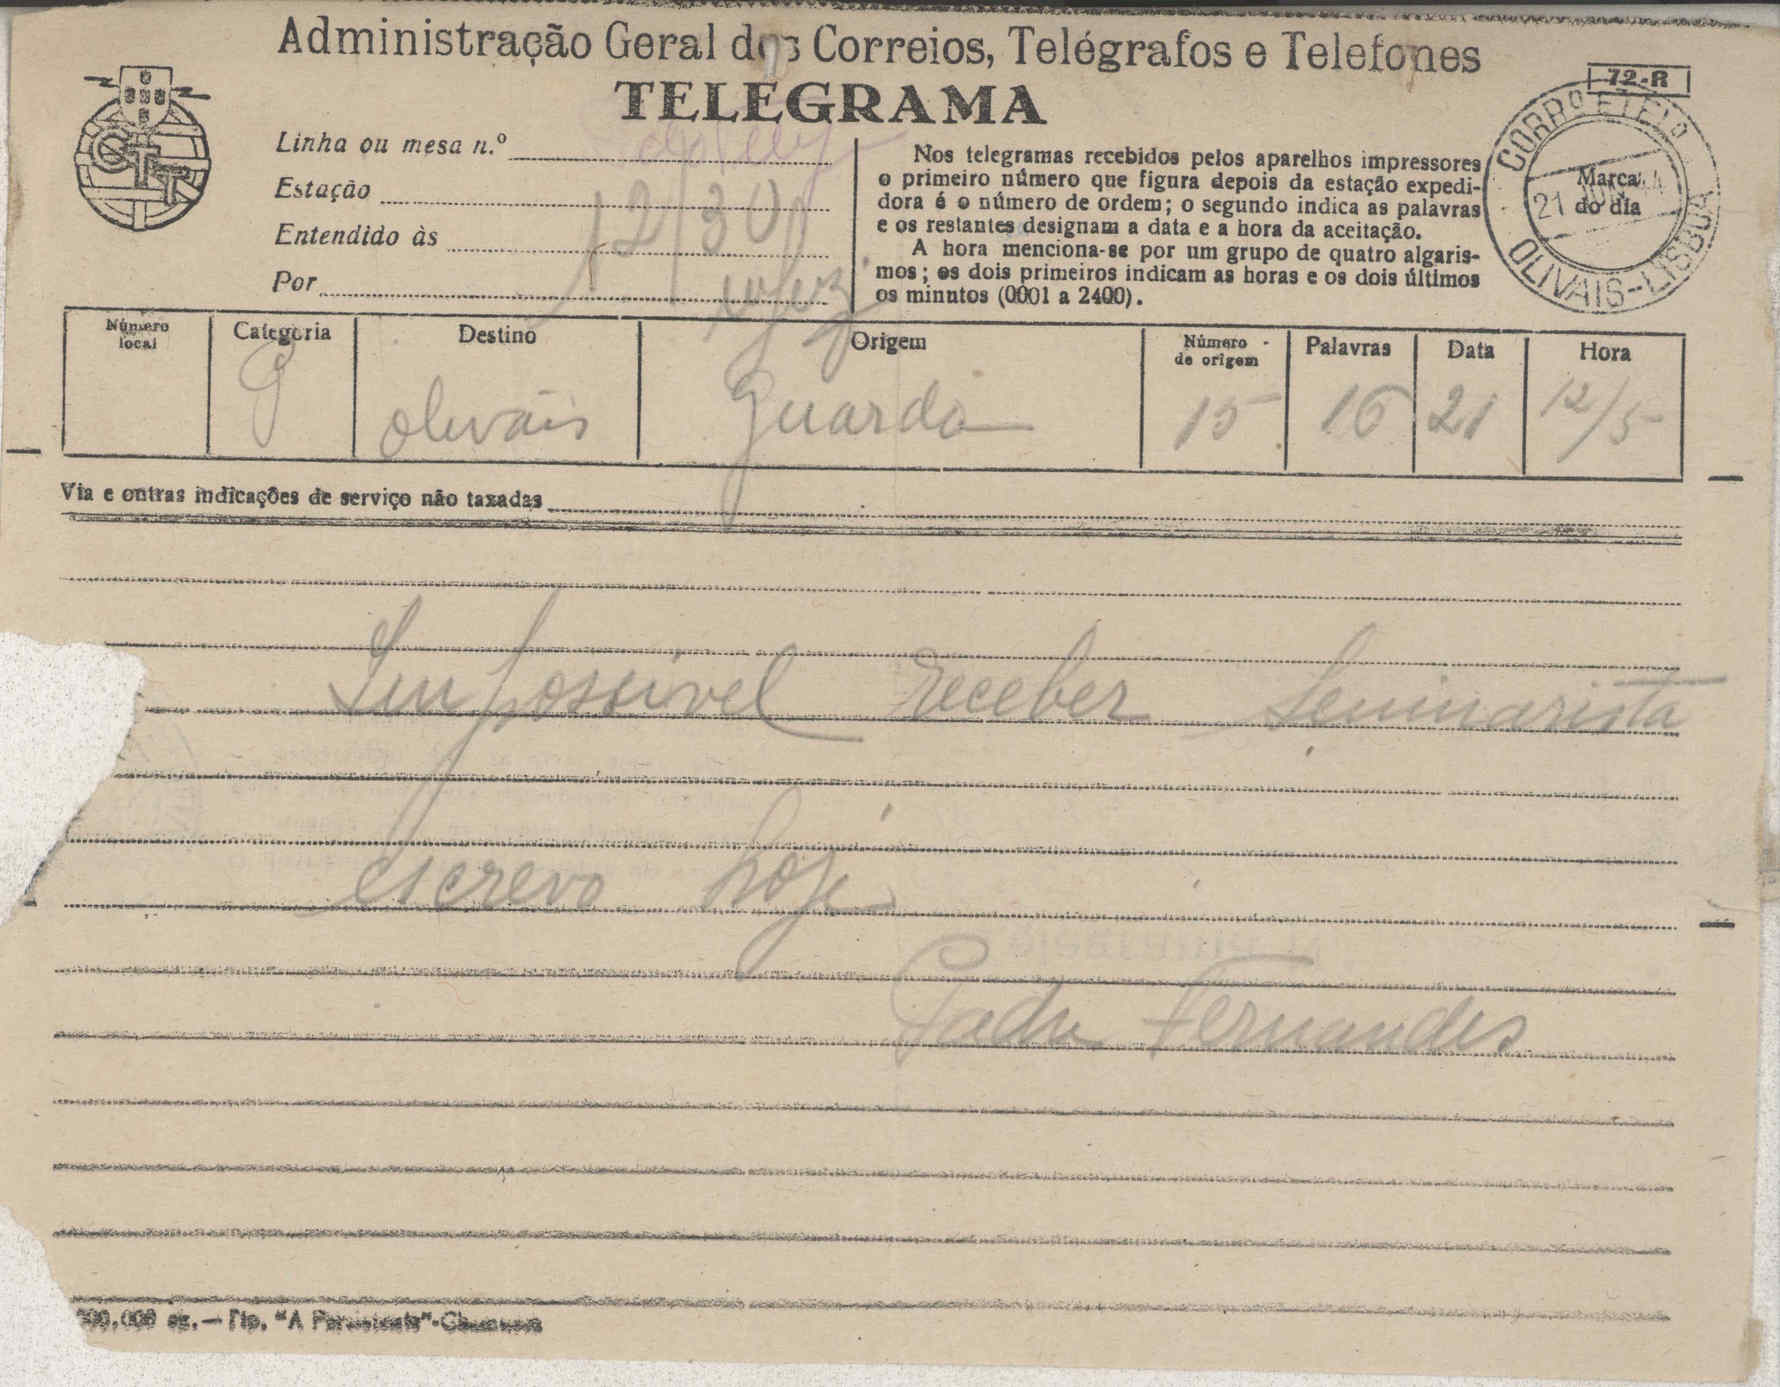 Administração Geral dos Correios, Telégrafos e Telefones
TELEGRAMA
72-R
CTT
Linha ou mesa n.º
Estação
Entendido às 12/30
Por
Nos telegramas recebidos pelos aparelhos impressores
o primeiro número que figura depois da estação expedi-
dora é o número de ordem; o segundo indica as palavras
e os restantes designam a data e a hora da aceitação.
A hora menciona-se por um grupo de quatro algaris-
mos; os dois primeiros indicam as horas e os dois últimos
os minutos (0001 a 2400).
Marca
do dia
CORRO E TELO
21 JUN 44
OLIVAIS-LISBOA
Número local Categoria Destino Origem Número de origem Palavras Data Hora
P Olivais Guarda 15 16 21 12/5
Via e outras indicações de serviço não taxadas
Impossivel receber Seminarista
escrevo hoje
Padre Fernandes
000.000 ex.—Tip. "A